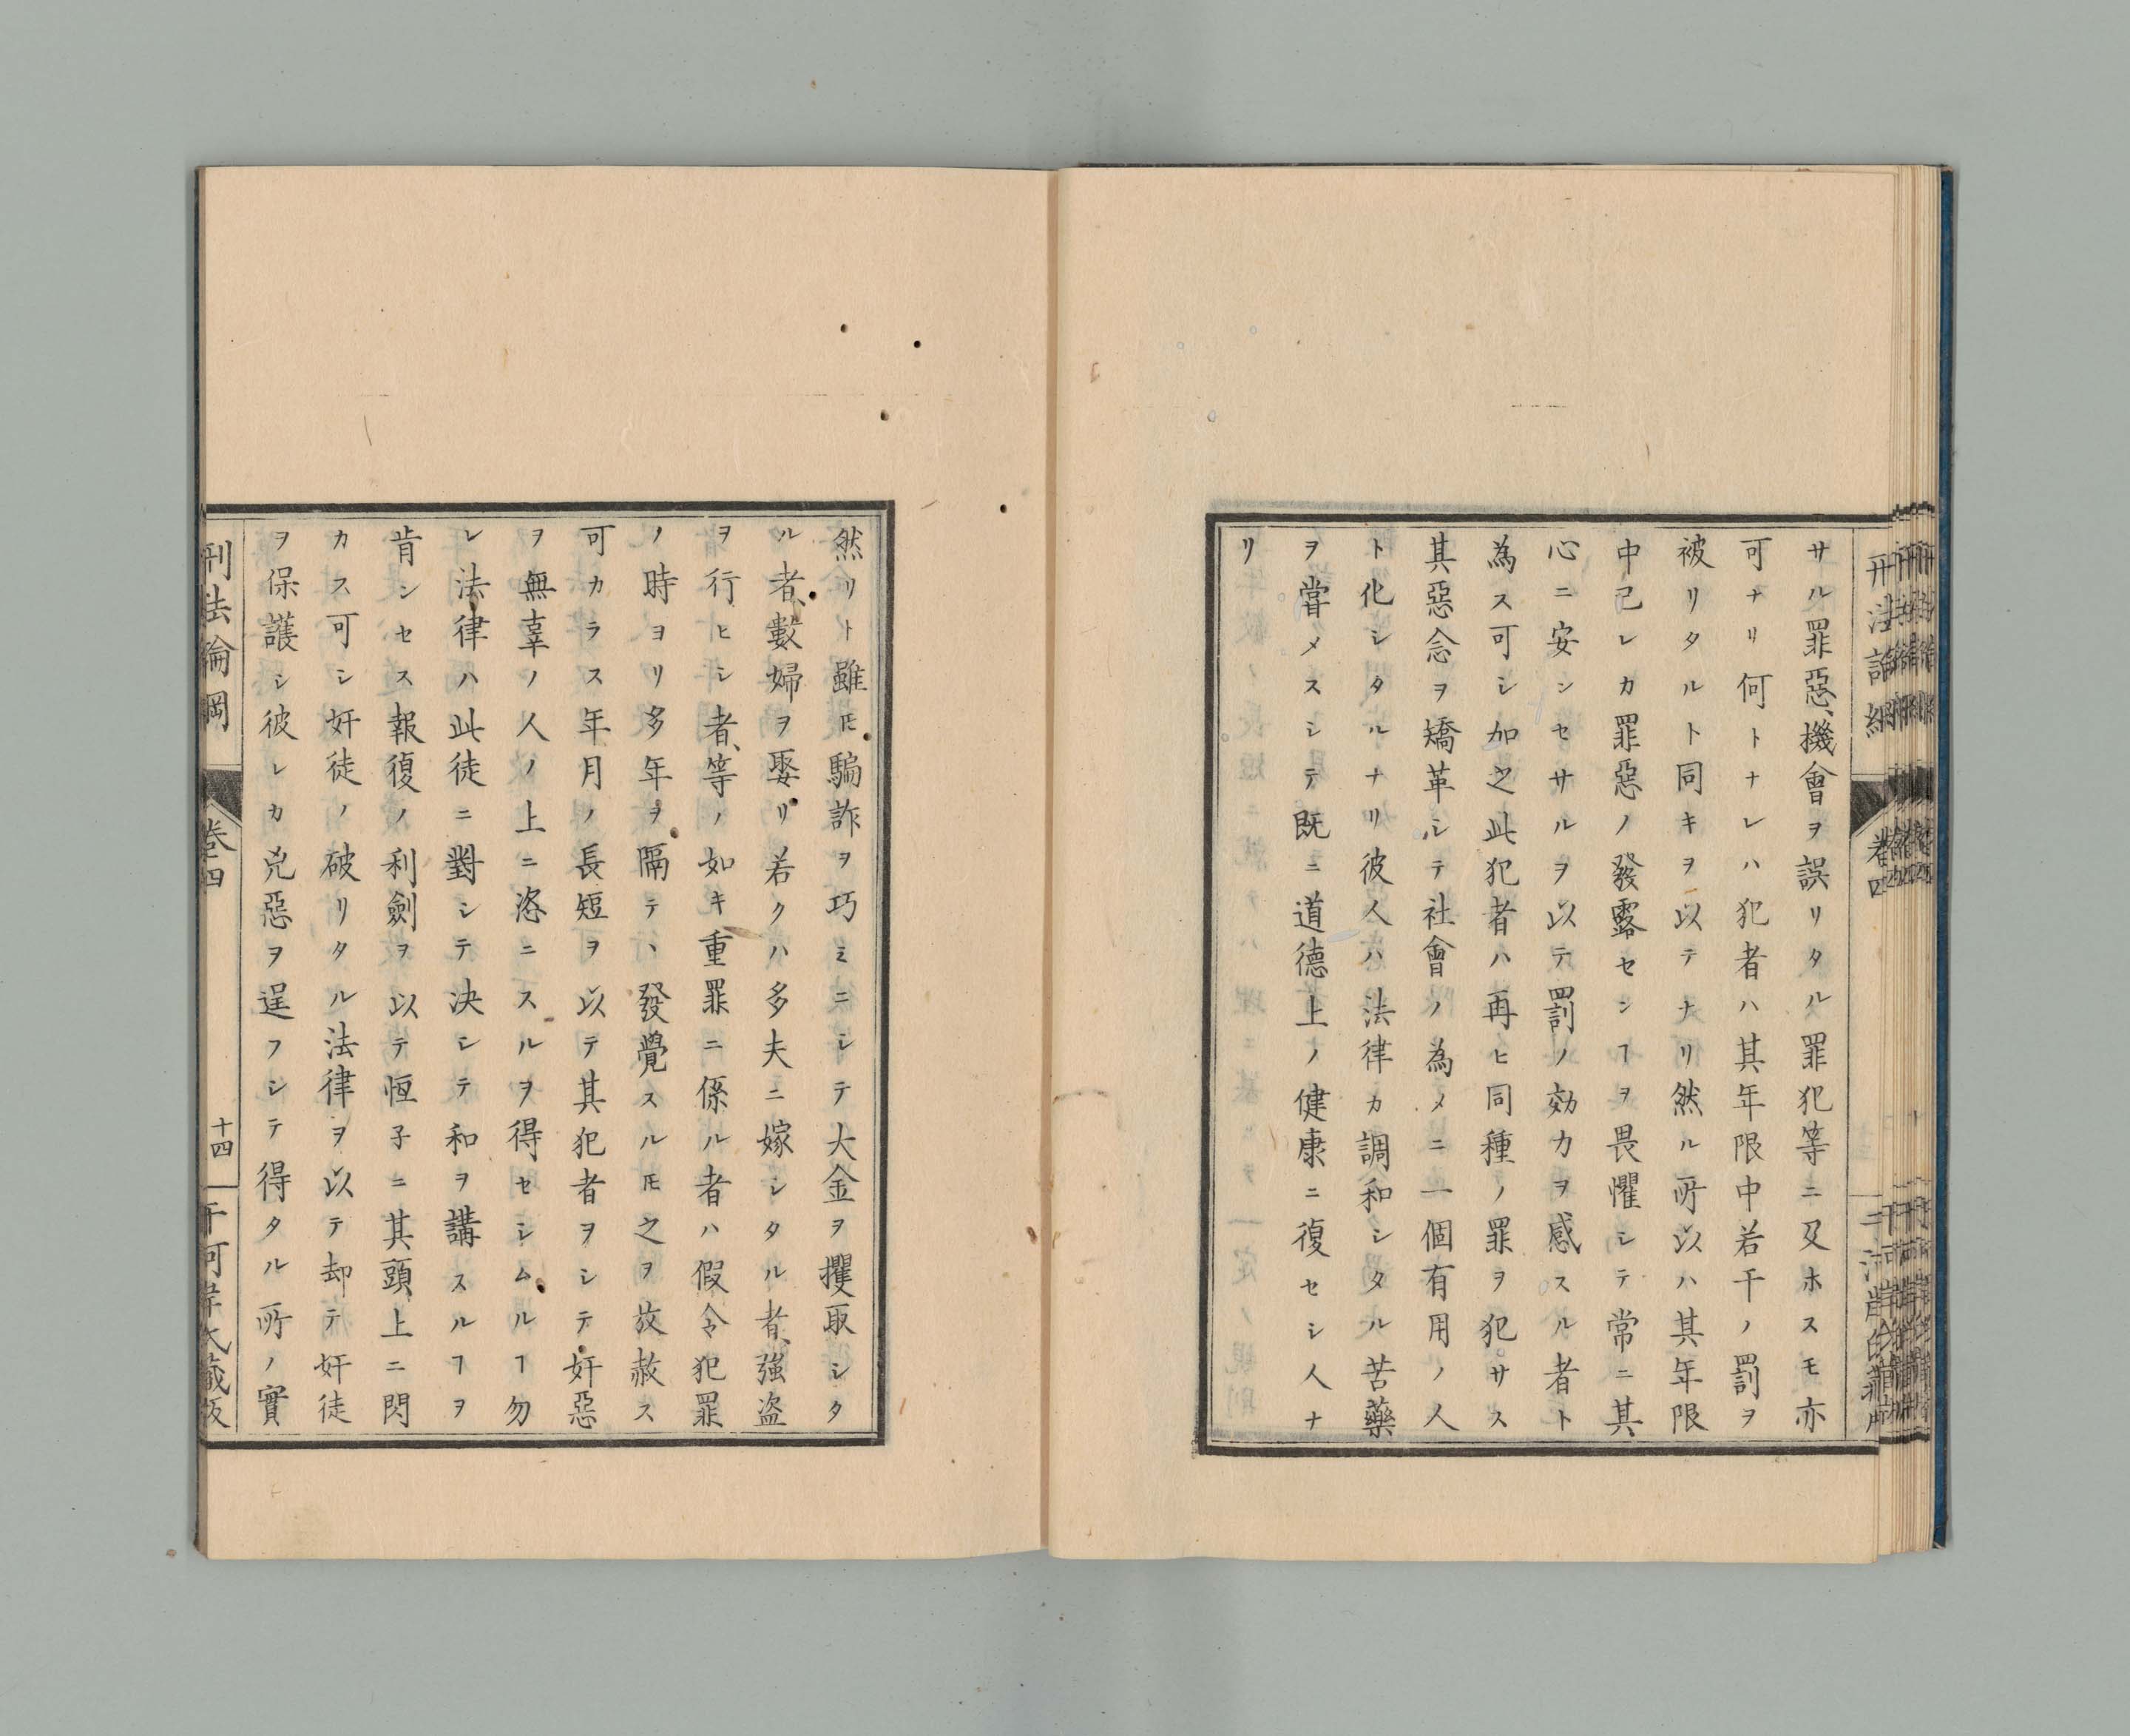 サル罪惡、機會ヲ誤リタル罪犯等ニ及ホスモ亦
可ナリ何トナレハ犯者ハ其年限中若干ノ罰ヲ
被リタルト同キヲ以テナリ然ル所以ハ其年限
中己レカ罪惡ノ發露センヿヲ畏懼シテ常ニ其
心ニ安ンセサルヲ以テ罰ノ効力ヲ感スル者ト
為ス可シ加之此犯者ハ再ヒ同種ノ罪ヲ犯サス
其惡念ヲ矯革シテ社會ノ為メニ一個有用ノ人
ト化シタルナリ彼人ハ法律カ調和シタル苦藥
ヲ甞メスシテ既ニ道德上ノ健康ニ復セシ人ナ
リ
然リト雖𪜈騙詐ヲ巧ミニシテ大金ヲ攫取シタ
ル者、數婦ヲ娶リ若クハ多夫ニ嫁シタル者、強盗
ヲ行ヒシ者、等ノ如キ重罪ニ係ル者ハ假令犯罪
ノ時ヨリ多年ヲ隔テ、發覺スル𪜈之ヲ放赦ス
可カラス年月ノ長短ヲ以テ其犯者ヲシテ奸惡
ヲ無辜ノ人ノ上ニ恣ニスルヲ得セシムルヿ勿
レ法律ハ此徒ニ對シテ決シテ和ヲ講スルヿヲ
肯ンセス報復ノ利劍ヲ以テ恒子ニ其頭上ニ閃
カス可シ奸徒ノ破リタル法律ヲ以テ却テ奸徒
ヲ保護シ彼レカ兇惡ヲ逞フシテ得タル所ノ實
刑法論綱
卷四
十四